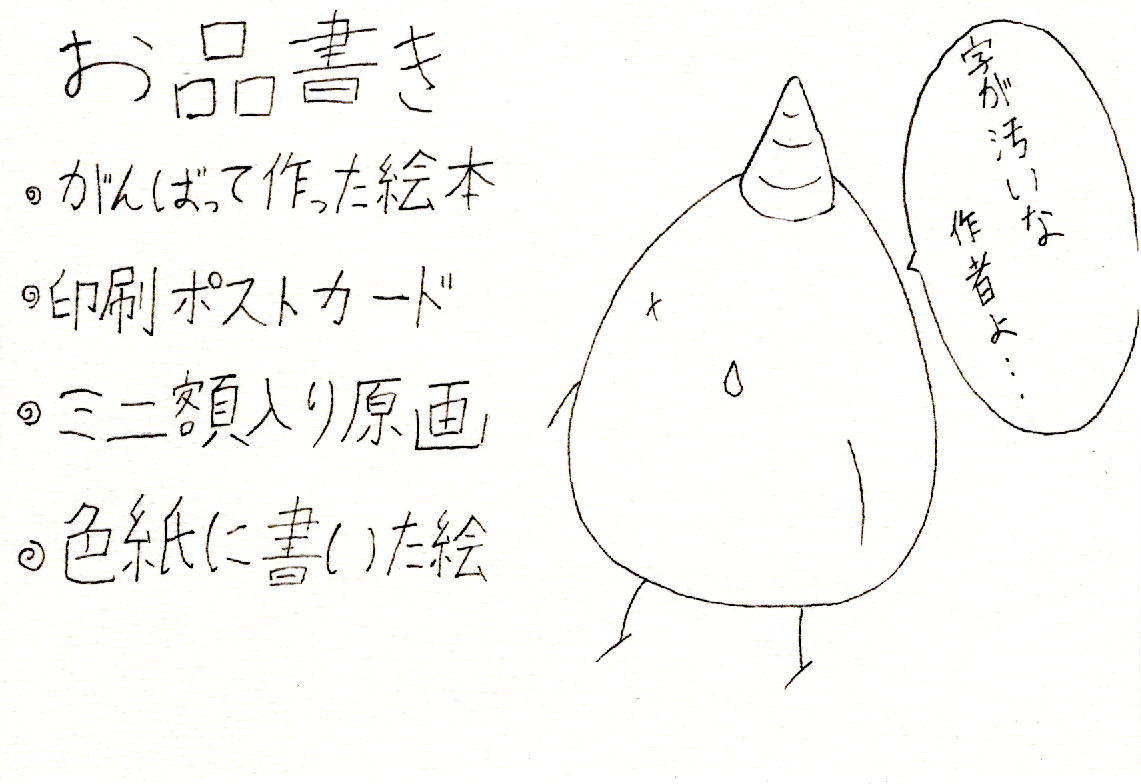 お品書き
がんばって作った絵本
印刷ポストカード
ミニ額入り原画
色紙に書いた絵
字が汚いな
作者よ...